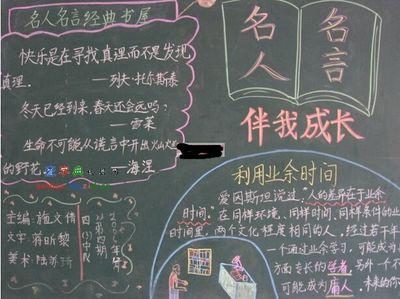 名人名言经典书屋
快乐是在寻找真理而不是发现
真理.
——列夫·托尔斯泰
冬天已经到来,春天还会远吗?
——雪莱
生命不可能从谎言中开出灿烂
的野花
——海涅
主编:施文倩
文字:蒋昕黎
美术:陆苏琦
四(3)中队
名人
名言
伴我成长
利用业余时间
爱因斯坦说过,"人的差异在于业余
时间."在同样环境,同样时间,同样条件的业
时间里,两个文化程度相同的人,经过若干年
一个通过业余学习,可能成为
方面专长的学者,另外一个不
可能成为庸人.未来的你